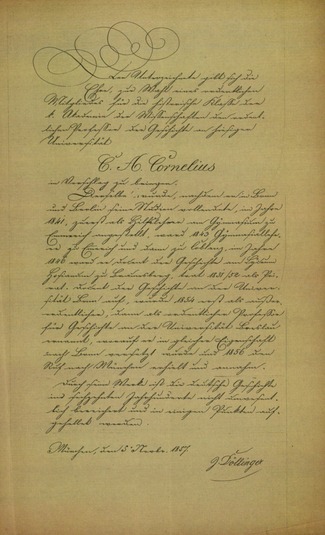 Der Unterzeichnete gibt sich die
Ehre, zur Wahl eines ordentlichen
Mitgliedes für die historische Klasse der
k. Akademie der Wissenschaften den ordent-
lichen Professor der Geschichte an hiesiger
Universität
C. A. Cornelius
in Vorschlag zu bringen.
Derselbe wurde, nachdem er in Bonn
und Berlin seine Studien vollendete, im Jahre
1841, zuerst als Hilfslehrer am Gymnasium zu
Emmerich angestellt, ward 1843 Gymnasiallehrer
zu und dann zu Coblenz, im Jahre
18 ward er Docent der Geschichte am Lyceum
Hosianum zu Braunsberg, trat 1851/52 als Pri-
vat-Docent der Geschichte an der Univer-
sität Bonn auf, wurde 1854 erst als außer-
ordentlicher, dann als ordentlicher Professor
für Geschichte an der Universität Breslau
ernannt, worauf er in gleicher Eigenschaft
nach Bonn versetzt wurde und 1856 den
Ruf nach München erhielt und annahm.
Durch seine Werke ist die deutsche Geschichte
des sechzehnten Jahrhunderts nicht unwesent-
lich bereichert und in einigen Punkten auf-
gehellt worden.
München, den 5 Novbr. 1857.
J. Döllinger